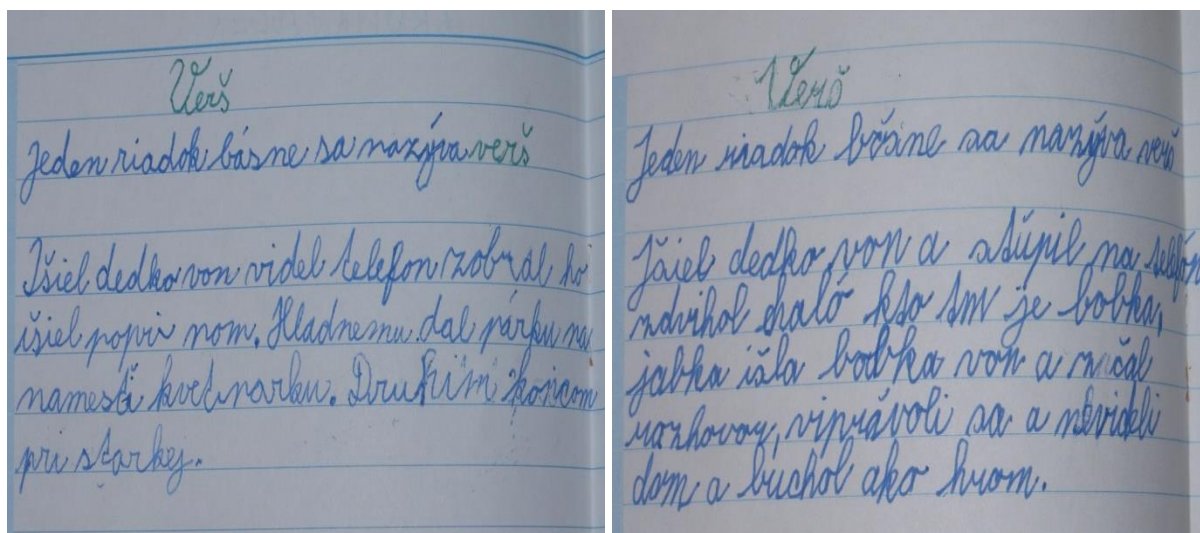 Verš
Jeden riadok básne sa nazýva verš
Išiel dedko von videl telefon zobral ho
išiel popri nom. Hladnemu dal párku na
namestí kvetinarku. Druhím koncom
pri starkej.
Verš
Jeden riadok básne sa nazýva verš
Išiel dedko von a stúpil na telefón
zdvihol haló kto tm je bobka,
jabka išla bobka von a začal
rozhovor, viprávoli sa a nevideli
dom a búchol ako hrom.